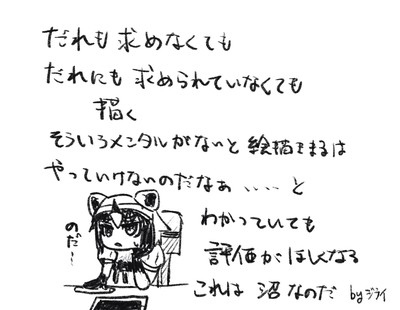 だれも求めなくても
だれにも求められていなくても
描く
そういうメンタルがないと絵描きまるは
やっていけないのだなぁ、、、、と
わかっていても
評価がほしくなる
これは沼なのだ byジライ
のだー